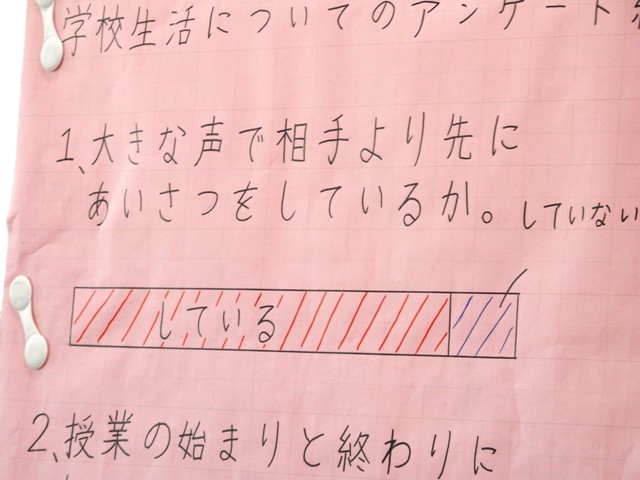 学校生活についてのアンケート
1、大きな声で相手より先に
あいさつをしているか。
していない
している
2、授業の始まりと終わりに